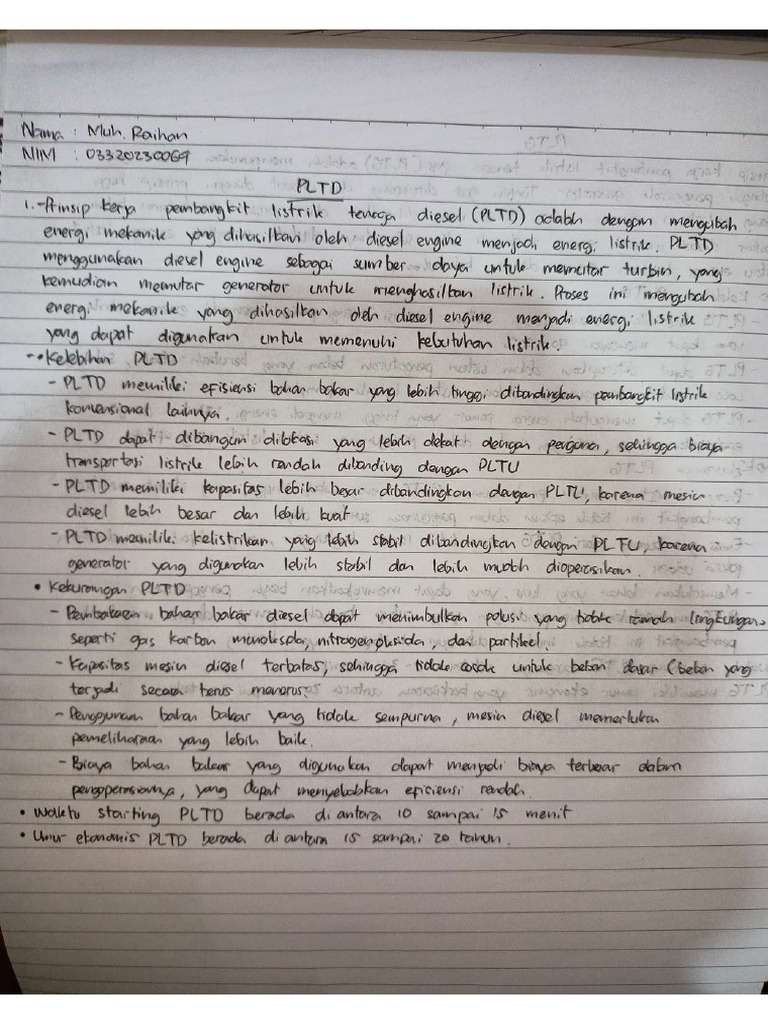 Nama : Muh. Raihan
NIM : 03320230069
PLTD
1. - Prinsip kerja pembangkit listrik tenaga diesel (PLTD) adalah dengan mengubah
energi mekanik yang dihasilkan oleh diesel engine menjadi energi listrik. PLTD
menggunakan diesel engine sebagai sumber daya untuk memutar turbin, yang
kemudian memutar generator untuk menghasilkan listrik. Proses ini mengubah
energi mekanik yang dihasilkan oleh diesel engine menjadi energi listrik
yang dapat digunakan untuk memenuhi kebutuhan listrik.
- • Kelebihan PLTD
- PLTD memiliki efisiensi bahan bakar yang lebih tinggi dibandingkan pembangkit listrik
konvensional lainnya.
- PLTD dapat dibangun dilokasi yang lebih dekat dengan pengguna, sehingga biaya
transportasi listrik lebih rendah dibanding dengan PLTU
- PLTD memiliki kapasitas lebih besar dibandingkan dengan PLTU, karena mesin
diesel lebih besar dan lebih kuat
- PLTD memiliki kelistrikan yang lebih stabil dibandingkan dengan PLTU, karena
generator yang digunakan lebih stabil dan lebih mudah dioperasikan.
• Kekurangan PLTD
- Pembakaran bahan bakar diesel dapat menimbulkan polusi yang tidak ramah lingkungan
seperti gas karbon monoksida, nitrogen oksida, dan partikel.
- Kapasitas mesin diesel terbatas, sehingga tidak cocok untuk beban dasar (beban yang
terjadi secara terus menerus.
- Penggunaan bahan bakar yang tidak sempurna, mesin diesel memerlukan
pemeliharaan yang lebih baik.
- Biaya bahan bakar yang digunakan dapat menjadi biaya terbesar dalam
pengoperasiannya, yang dapat menyebabkan efisiensi rendah.
• Waktu starting PLTD berada di antara 10 sampai 15 menit
• Umur ekonomis PLTD berada di antara 15 sampai 20 tahun.